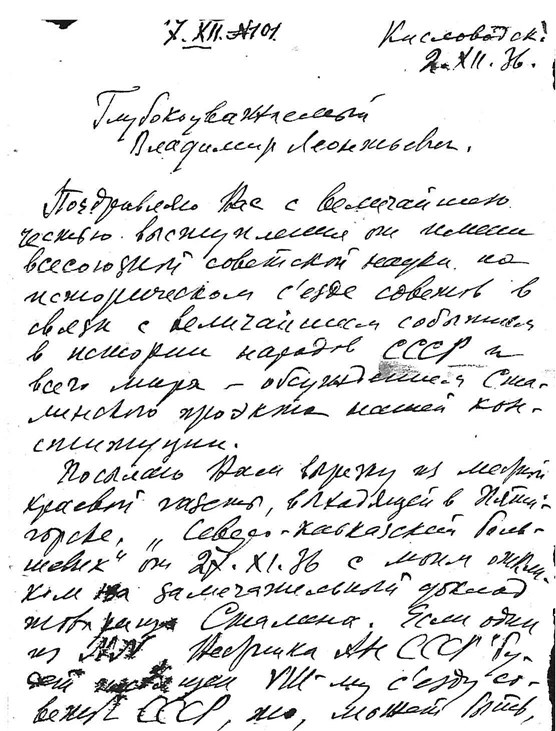 7. XII. №101.
Кисловодск.
2. XII. 36.
Глубокоуважаемый
Владимир Леонтьевич.
Поздравляю Вас с величайшею
честью выступления от имени
всесоюзной советской науки на
историческом с'езде советов в
связи с величайшим событием
в истории народов СССР и
всего мира – обсуждением Ста-
линского проекта нашей кон-
ституции.
Посылаю Вам вырезку из местной
краевой газеты, выходящей в Пяти-
горске, „Северо-Кавказский боль-
шевик" от 27.XI.36 с моим откли-
ком на замечательный доклад
товарища Сталина. Если один
из №№ Вестника АН СССР бу-
дет посвящен VIII-му с'езду со-
ветов СССР, то, может быть,